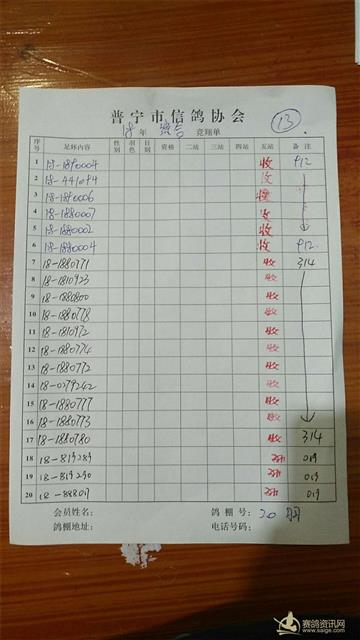 普宁市信鸽协会
13
18年 综合 竞翔单
序号 足环内容 性别 羽色 目别 资格 二站 三站 四站 五站 备注
1 18-1890004 收 912
2 收
3 收
4 18-1880007 收
5 18-1880002 收
6 18-1880004 收 912
7 18-1880771 收 314
8 18-1810923 收
9 18-1880800 收
10 18-1880778 收
11 18-1810972 收
12 18-1880774 收
13 18-1880772 收
14 18-0279242 收
15 18-1880777 收
16 18-1880773 收
17 18-1880780 收 314
18 18-819289 019
19 18-819290 019
20 019
会员姓名: 鸽棚号: 20羽
鸽棚地址: 电话号码:
赛鸽资讯网
www.saige.com